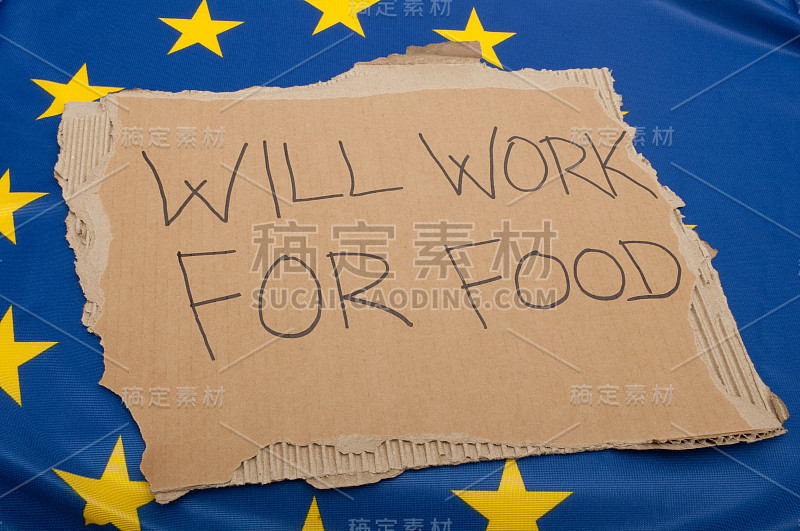 稿定素材
稿定素材 稿定素材
WILL WORK
FOR FOOD
稿定素材
SUCAI.GAODING.COM
稿定素材 稿定素材
稿定素材